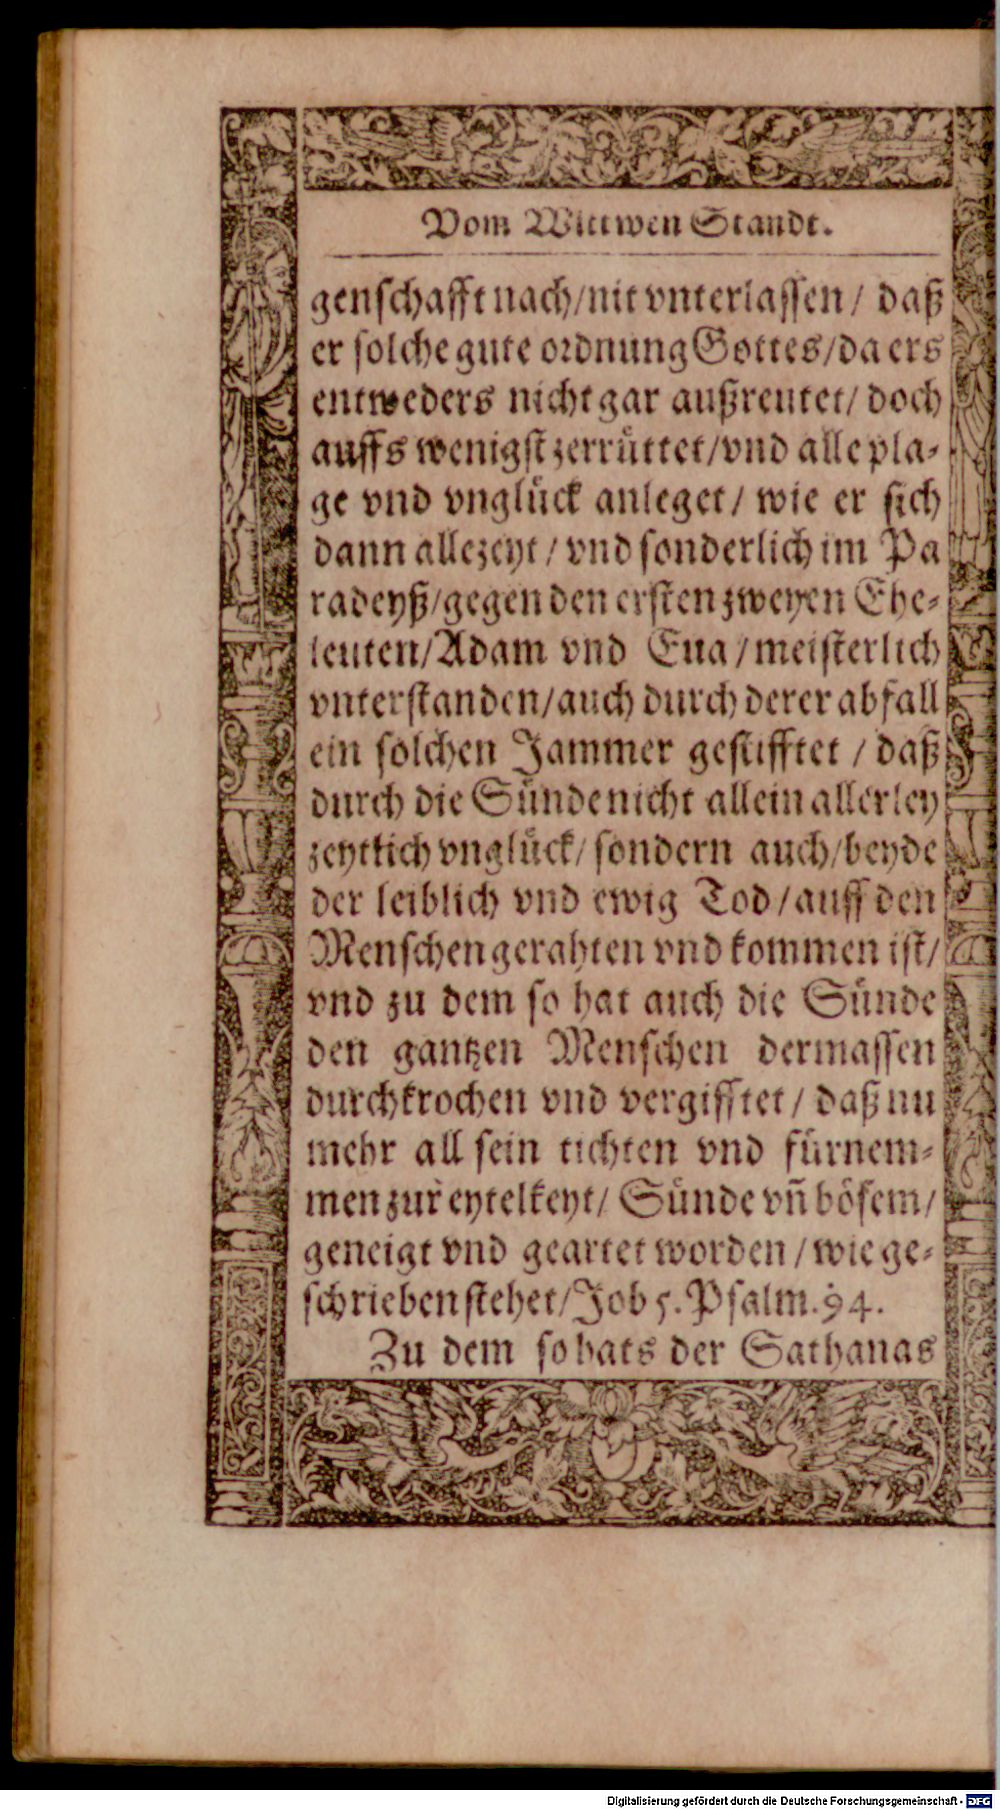 Vom Wittwen Standt.
genschafft nach/nit vnterlassen/ daß
er solche gute ordnung Gottes/da ers
entweders nicht gar außreutet/ doch
auffs wenigst zerrüttet/vnd alle pla-
ge vnd vnglück anleget/ wie er sich
dann allezeyt/ vnd sonderlich im Pa
radeyß/gegen den ersten zweyen Ehe-
leuten/Adam vnd Eua/meisterlich
vnterstanden/auch durch derer abfall
ein solchen Jammer gestifftet/ daß
durch die Sünde nicht allein allerley
zeytlich vnglück/ sondern auch/beyde
der leiblich vnd ewig Tod/auff den
Menschen gerahten vnd kommen ist/
vnd zu dem so hat auch die Sünde
den gantzen Menschen dermassen
durchkrochen vnd vergifftet/ daß nu
mehr all sein tichten vnd fürnem-
men zur eytelkeyt/ Sünde vñ bösem/
geneigt vnd geartet worden/wie ge-
schrieben stehet/Job 5. Psalm. 94.
Zu dem so hats der Sathanas
Digitalisierung gefördert durch die Deutsche Forschungsgemeinschaft - DFG